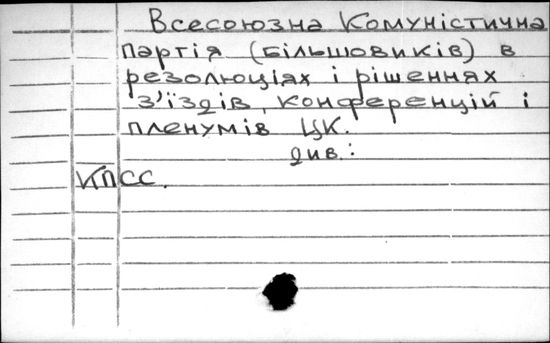 Всесоюзна Комуністична
партія (більшовиків) в
резолюціях і рішеннях
з'їздів, конференцій і
пленумів ЦК.
див.:
КПСС.